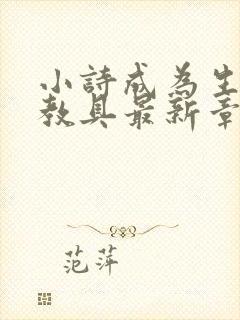 小詩成為生
教具最新章
范萍